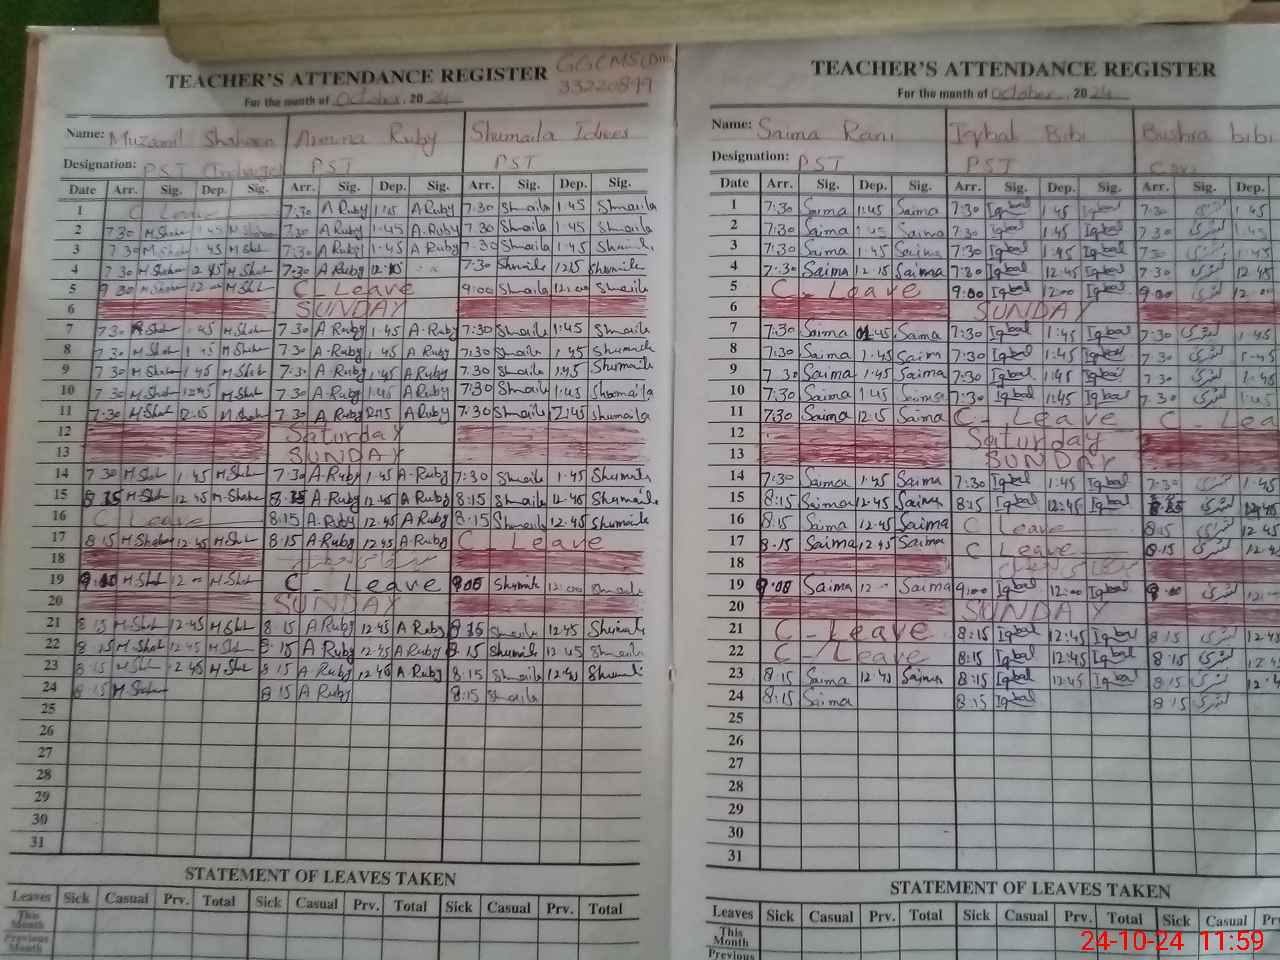 TEACHER'S ATTENDANCE REGISTER
33220899
For the month of October, 2024
Name: Muzamil Shaheen Amina Ruby Shumaila Idrees
Designation: PST PST PST
Date Arr. Sig. Dep. Sig. Arr. Sig. Dep. Sig. Arr. Sig. Dep. Sig.
1 C Leave 7:30 A Ruby 1:45 A Ruby 7:30 Shmaila 1:45 Shmaila
2 7 30 M.Shah 1.45 7:30 A Ruby 1:45 A Ruby 7.30 Shmaila 1:45 Shmaila
3 7 30 M.Shah 1.45 M.Shah 7:30 A Ruby 1:45 A Ruby 7:30 Shmaila 1:45
4 7 30 M.Shah 12 45 M.Shah 7:30 A Ruby 7:30 Shumaila 12:15 Shumaila
5 9 30 M.Shah 12 00 M.Shah C-Leave 9:00 Shmaila 12:00 Shmaila
6 SUNDAY
7 7 30 M.Shah 1.45 M.Shah 7.30 A Ruby 1:45 A-Ruby 7:30 Shmaila 1:45 Shmaila
8 7 30 M.Shah 1 45 M.Shah 7.30 A-Ruby 1.45 A Ruby 7:30 Shmaila 1.45 Shumaila
9 7 30 M.Shah 1.45 M.Shah 7:30 A-Ruby 1.45 A Ruby 7.30 Shmaila 1:45 Shumaila
10 7.30 M.Shah 12:45 M.Shah 7.30 A Ruby 1:45 A Ruby 7:30 Shmaila 1:45 Shumaila
11 7:30 M.Shah 12:15 M.Shah 7.30 A Ruby 12:15 A Ruby 7:30 Shmaila 12:45 Shumaila
12 Saturday
13 SUNDAY
14 7 30 M.Shah 1.45 M.Shah 7:30 A-Ruby 1.45 A-Ruby 7:30 Shmaila 1.45 Shumaila
15 8 15 M.Shah 12 45 M-Shah 8.15 A-Ruby 12.45 A Ruby 8:15 Shmaila 12.45 Shumaila
16 C Leave 8:15 A-Ruby 12.45 A-Ruby 8:15 Shmaila 12.45 Shumaila
17 8 15 M.Shah 12 45 M.Shah 8:15 A Ruby 12:45 A-Ruby C - Leave
18
19 9:00 M-Shah 12 M-Shah C - Leave 9:00 Shumaila 12:00
20 SUNDAY
21 8 15 M.Shah 12.45 M.Shah 8 15 A Ruby 12:45 A Ruby 8:15 Shmaila 12.45 Shumaila
22 8 15 M.Shah 12.45 M.Shah 8.15 A Ruby 12.45 A Ruby 8.15 Shumaila 12 45 Shmaila
23 8 15 M.Shah 12 45 M.Shah 8 15 A Ruby 12.45 A.Ruby 8:15 Shmaila 12:45 Shumaila
24 8 15 M.Shah 8 15 A Ruby 8:15 Shmaila
25
26
27
28
29
30
31
STATEMENT OF LEAVES TAKEN
Leaves Sick Casual Prv. Total Sick Casual Prv. Total Sick Casual Prv. Total
This Month
Previous Month
TEACHER'S ATTENDANCE REGISTER
For the month of October, 2024
Name: Saima Rani Iqbal Bibi Bushra bibi
Designation: PST PST
Date Arr. Sig. Dep. Sig. Arr. Sig. Dep. Sig. Arr. Sig. Dep.
1 7:30 Saima 1:45 Saima 7:30 Iqbal 1.45 Iqbal 7:30 بشری 1 45
2 7:30 Saima 1:45 Saima 7:30 Iqbal 1.45 Iqbal 7.30 بشری 1.45
3 7:30 Saima 1.45 Saima 7:30 Iqbal 1:45 Iqbal 7:30 بشری 1.45
4 7:30 Saima 12:15 Saima 7:30 Iqbal 12:45 Iqbal 7.30 بشری 12 45
5 C - Leave 9:00 Iqbal 12:00 Iqbal 9:00 بشری 12:00
6 SUNDAY
7 7:30 Saima 1:45 Saima 7:30 Iqbal 1:45 Iqbal 7:30 بشری 1.45
8 7:30 Saima 1:45 Saima 7:30 Iqbal 1:45 Iqbal 7.30 بشری 1:45
9 7.30 Saima 1:45 Saima 7:30 Iqbal 1:45 Iqbal 7.30 بشری 1.45
10 7:30 Saima 1:45 Saima 7:30 Iqbal 1:45 Iqbal 7.30 بشری 1:45
11 7:30 Saima 12:15 Saima C - Leave C - Lea
12 Saturday
13 SUNDAY
14 7:30 Saima 1.45 Saima 7:30 Iqbal 1:45 Iqbal 7:30 بشری 1.45
15 8:15 Saima 12:45 Saima 8:15 Iqbal 12:45 Iqbal 8:15 بشری 12:45
16 8:15 Saima 12.45 Saima C Leave 8:15 بشری 12:45
17 8.15 Saima 12.45 Saima C Leave 8.15 بشری 12.4
18
19 9:00 Saima 12 Saima 9:00 Iqbal 12:00 Iqbal 9:00 بشری 12
20 SUNDAY
21 C - Leave 8:15 Iqbal 12:45 Iqbal 8 15 بشری 12.45
22 C - Leave 8:15 Iqbal 12:45 Iqbal 8:15 بشری 12:4
23 8:15 Saima 12:45 Saima 8:15 Iqbal 12:45 Iqbal 8:15 بشری 12.4
24 8:15 Saima 8:15 Iqbal 8 15 بشری
25
26
27
28
29
30
31
STATEMENT OF LEAVES TAKEN
Leaves Sick Casual Prv. Total Sick Casual Prv. Total Sick Casual
This Month
Previous
24-10-24 11:59